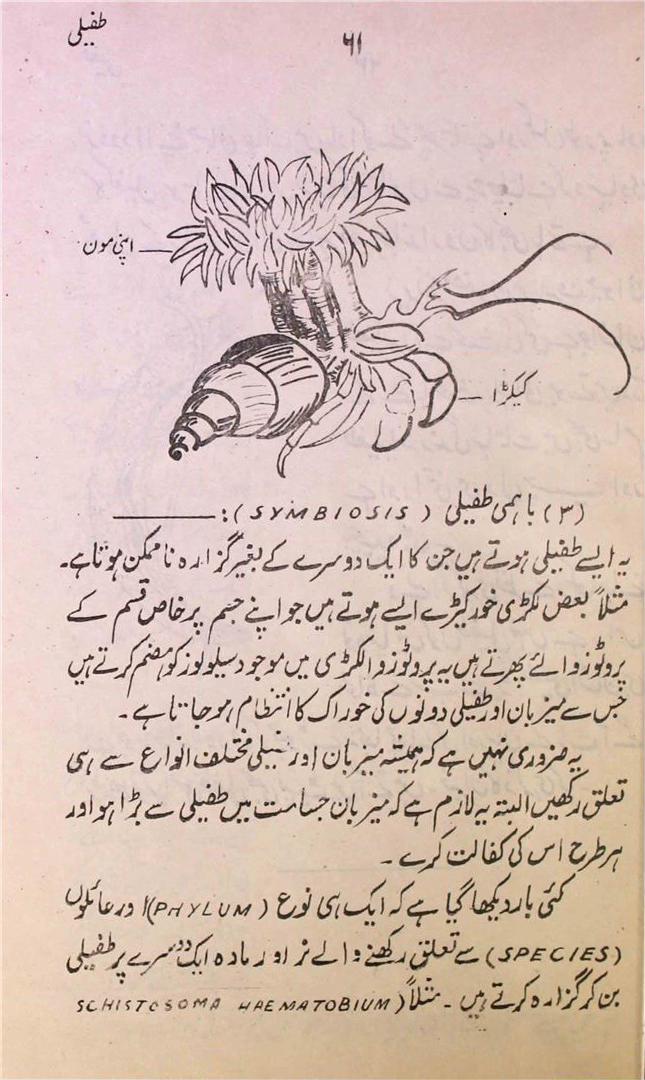 طفیلی
۶۱
اپنی مون
کیکڑا
(۳) باہمی طفیلی (SYMBIOSIS):ـــــــــ
یہ ایسے طفیلی ہوتے ہیں جن کا ایک دوسرے کے بغیر گزارہ ناممکن ہوتا ہے۔
مثلاً بعض لکڑی خور کیڑے ایسے ہوتے ہیں جو اپنے جسم پر خاص قسم کے
پروٹوزوائے پھرتے ہیں یہ پروٹوزوا لکڑی میں موجود سیلولوز کو ہضم کرتے ہیں
جس سے میزبان اور طفیلی دونوں کی خوراک کا انتظام ہو جاتا ہے۔
یہ ضروری نہیں ہے کہ ہمیشہ میزبان اور مختلف انواع سے ہی
تعلق رکھیں البتہ یہ لازم ہے کہ میزبان جسامت میں طفیلی سے بڑا ہو اور
ہر طرح اس کی کفالت کرے۔
کئی بار دیکھا گیا ہے کہ ایک ہی نوع (PHYLUM) اور عائلوں
(SPECIES) سے تعلق رکھنے والے نر اور مادہ ایک دوسرے پر طفیلی
بن کر گزارہ کرتے ہیں۔ مثلاً (SCHISTOSOMA HAEMATOBIUM